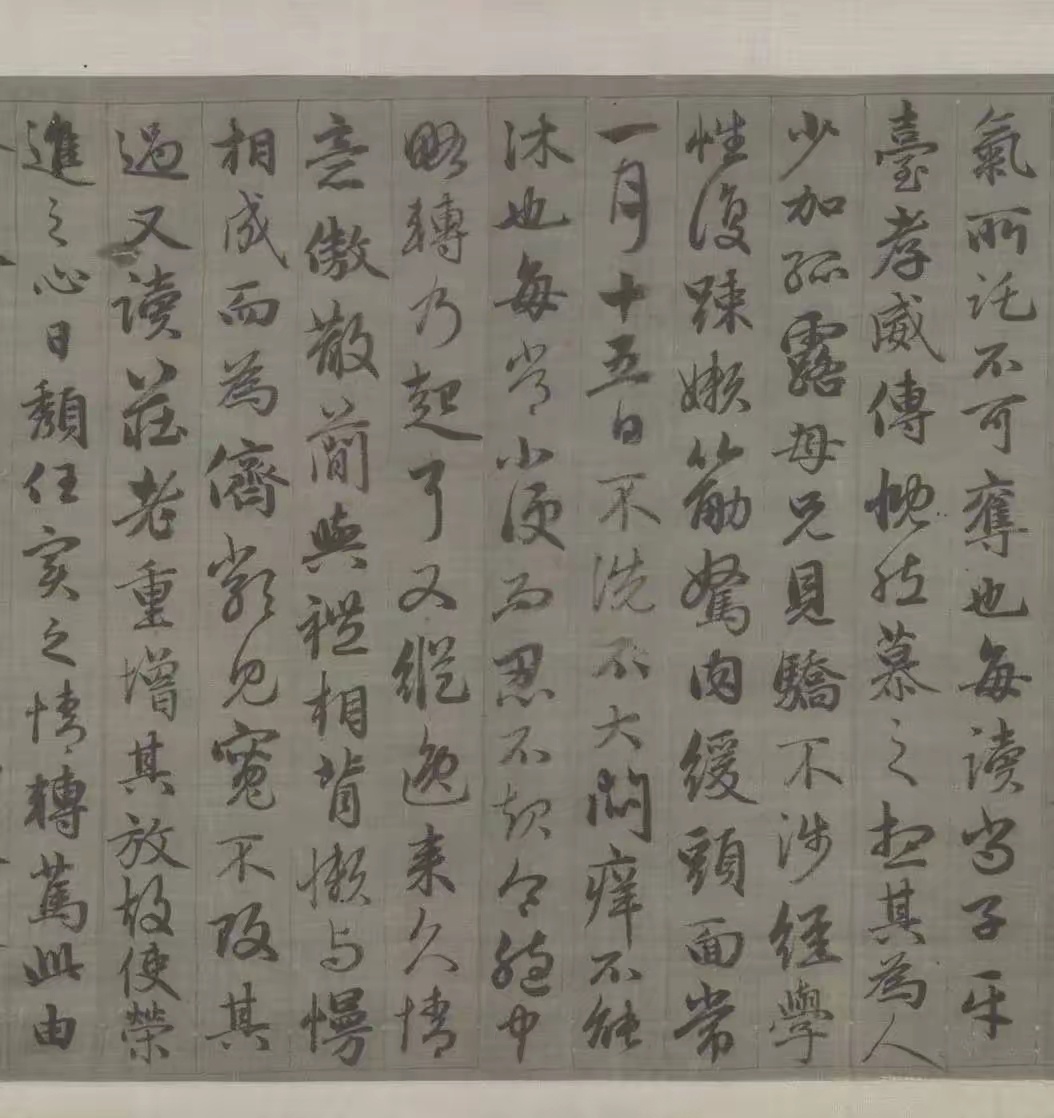 氣所託不可奪也每讀尚子平
臺孝威傳慨然慕之想其為人
少加孤露母兄見驕不涉經學
性復踈嬾筋駑肉緩頭面常
一月十五日不洗不大悶痒不能
沐也每常小便而忍不起令胞中
略轉乃起耳又縱逸來久情
意傲散簡與禮相背懶与慢
相成而為儕類見寬不攻其
過又讀莊老重增其放故使榮
進之心日頹任實之情轉篤此由